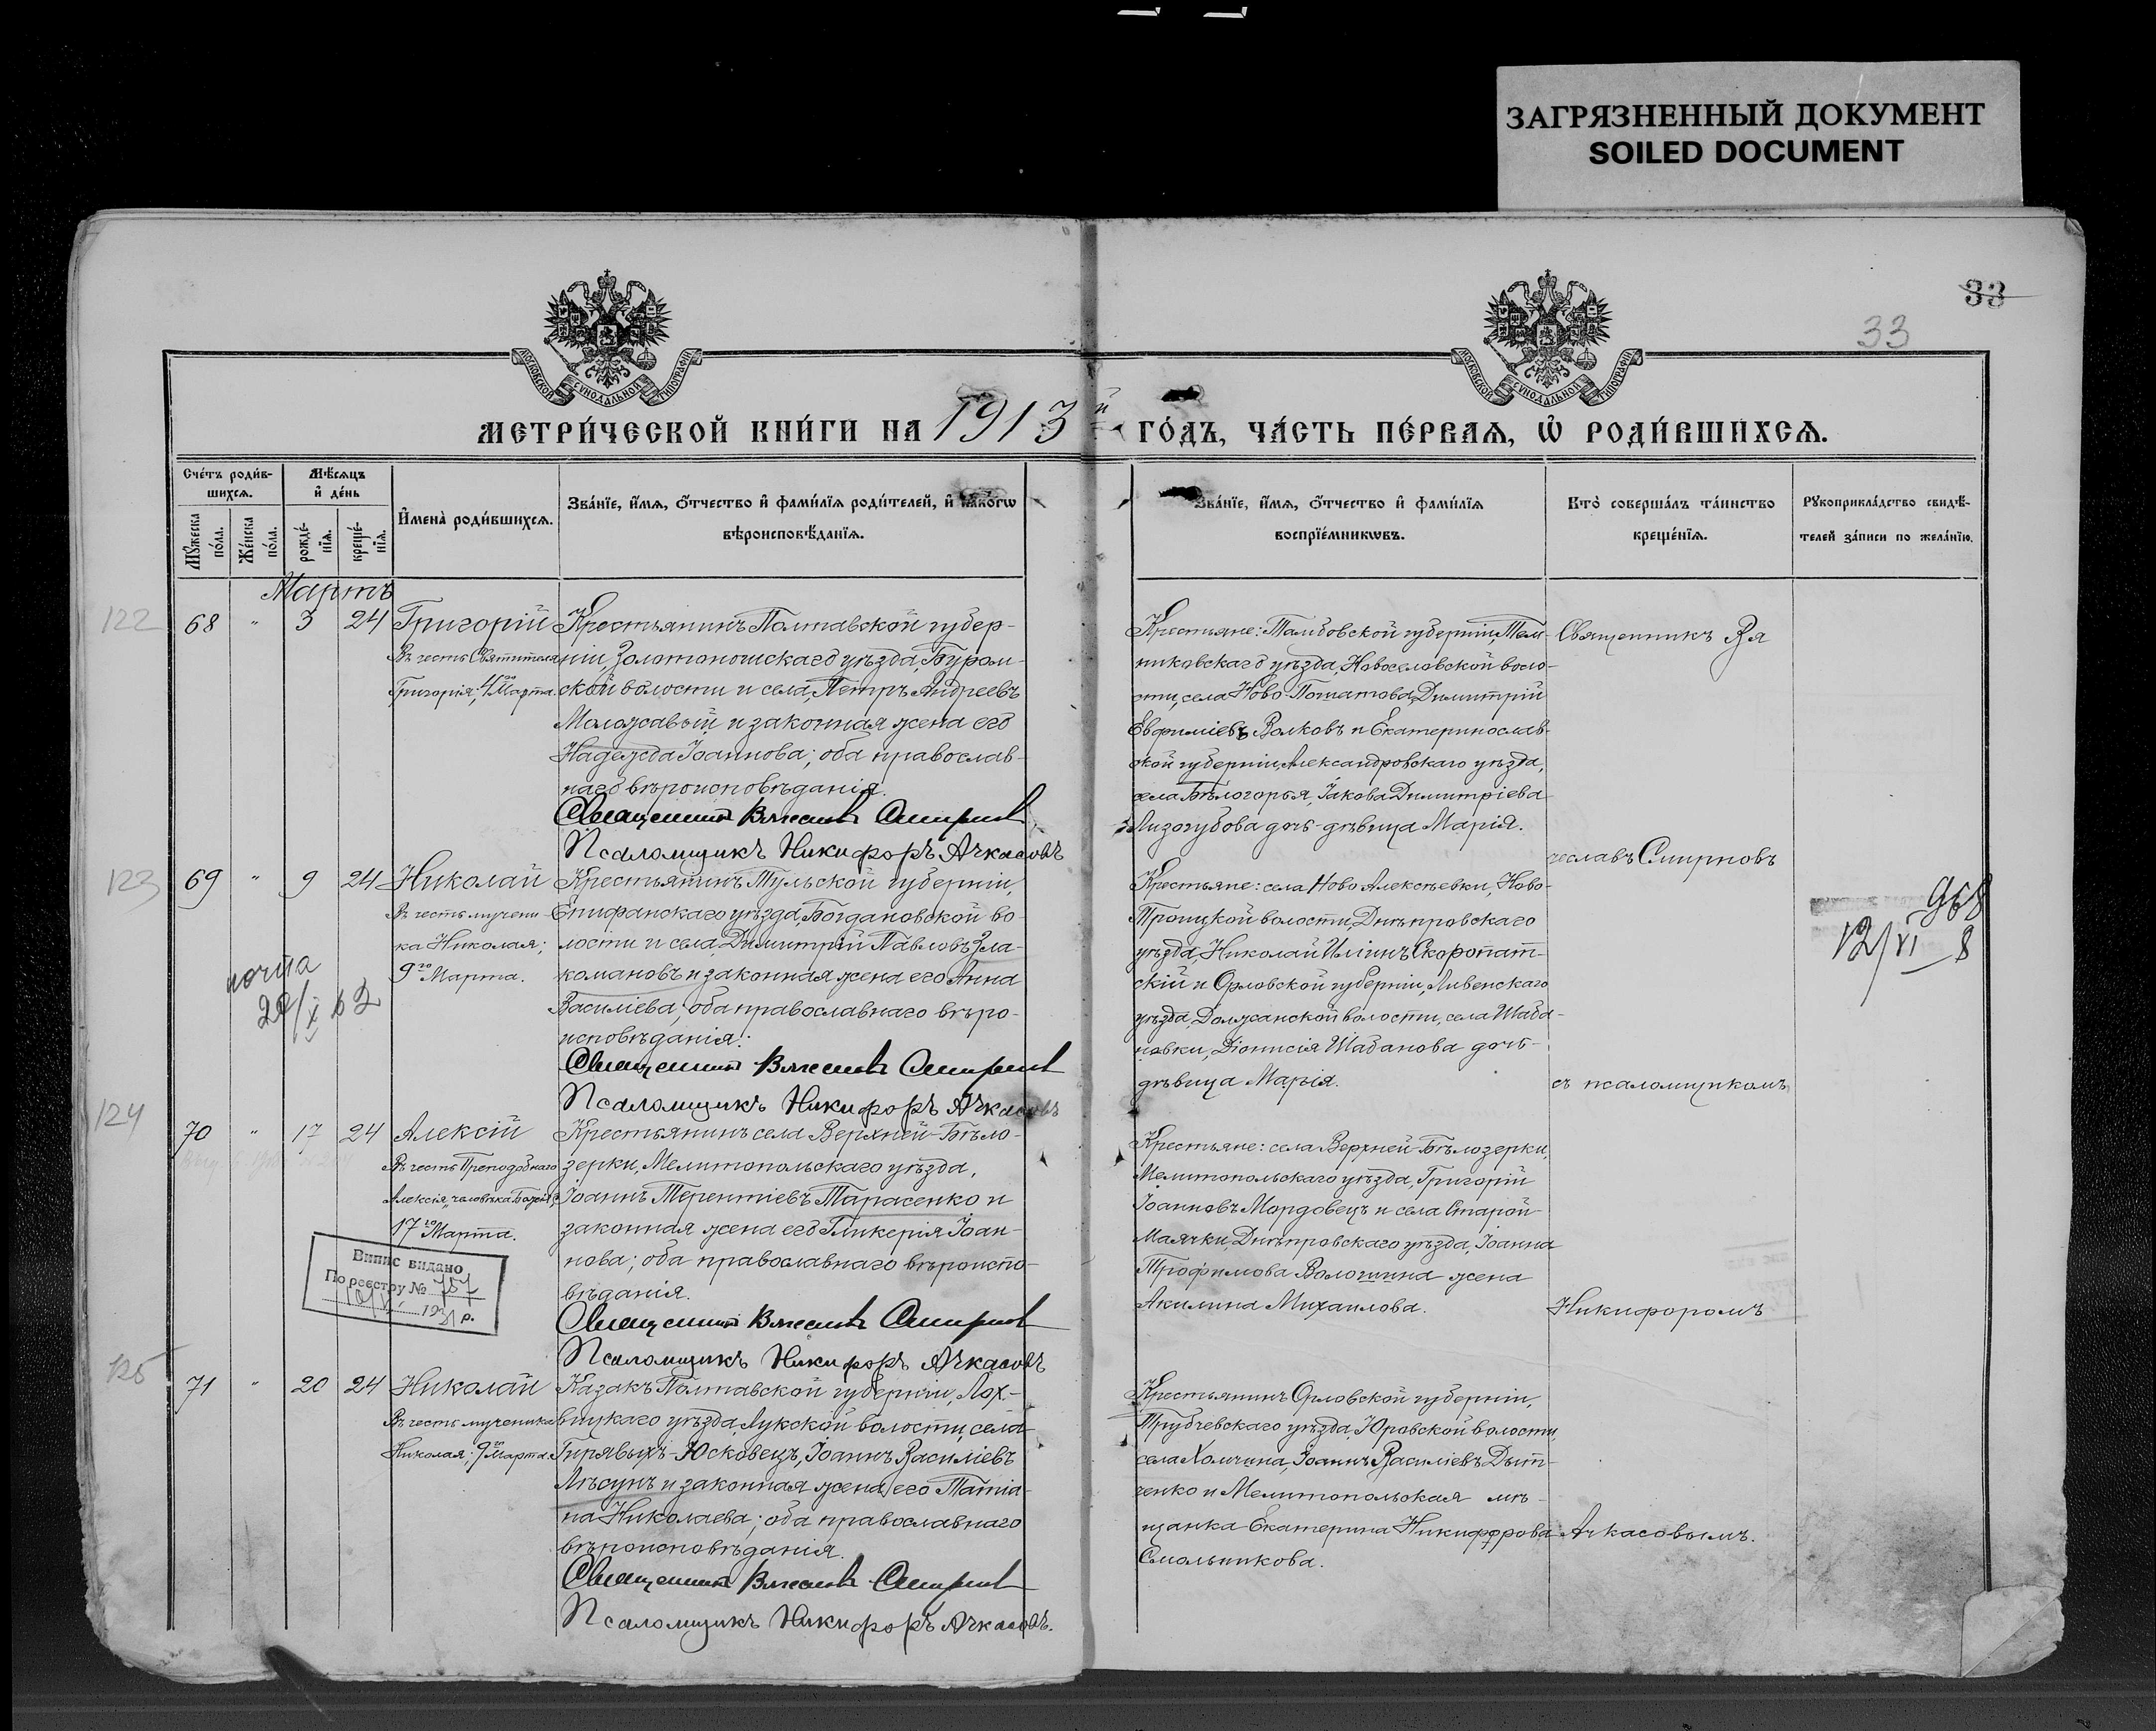 ЗАГРЯЗНЕННЫЙ ДОКУМЕНТ
SOILED DOCUMENT
33
33
МОСКОВСКОЙ СѴНОДАЛЬНОЙ ТИПОГРАФІИ
МОСКОВСКОЙ СѴНОДАЛЬНОЙ ТИПОГРАФІИ
МЕТРИ́ЧЕСКОЙ КНИ́ГИ НА 1913й ГО́ДЪ, ЧА́СТЬ ПЕ́РВАЯ, Ѡ҆ РОДИ́ВШИХСЯ.
Сче́тъ роди́в-
шихся.
Мѣ́сяцъ
и҆ де́нь
Мꙋ́жеска по́ла.
Же́нска по́ла.
рожде́-
нїя.
креще́-
нїя.
И҆мена̀ роди́вшихся.
Зва́нїе, и҆́мя, ѻ҆́тчество и҆ фами́лїя роди́телей, и҆ како́гѡ
вѣроисповѣ́данїя.
Зва́нїе, и҆́мя, ѻ҆́тчество и҆ фами́лїя
воспрїе́мникѡвъ.
Кто̀ соверша́лъ та́инство
креще́нїя.
Рꙋкоприкла́дство свидѣ́-
телей за́писи по жела́нїю.
Мартъ
122
68 " 3 24 Григорій
Въ честь Святителя
Григорія; 4го Марта.
Крестьянинъ Полтавской губер-
ніи, Золотоношскаго уѣзда, Буром-
ской волости и села, Петръ Андреевъ
Моложавый и законная жена его
Надежда Іоаннова; оба православ-
наго вѣроисповѣданія.
Священникъ Вячеславъ Смирновъ
Псаломщикъ Никифоръ Ачкасовъ
Крестьяне: Тамбовской губерніи, Тем-
никовскаго уѣзда, Новоселовской воло-
сти, села Ново-Пошатова, Димитрій
Евфиміевъ Волковъ и Екатеринослав-
ской губерніи, Александровскаго уѣзда,
села Бѣлогорья, Іакова Димитріева
Лизогубова дочь-дѣвица Марія.
Священникъ Вя
чеславъ Смирновъ
123
69 " 9 24 Николай
Въ честь мучени-
ка Николая;
9го Марта.
почта
Крестьянинъ Тульской губерніи,
Епифанскаго уѣзда, Богдановской во-
лости и села, Димитрій Павловъ Зла-
комановъ и законная жена его Анна
Василіева; оба православнаго вѣро-
исповѣданія.
Священникъ Вячеславъ Смирновъ
Псаломщикъ Никифоръ Ачкасовъ
Крестьяне: села Ново Алексѣевки, Ново-
Троицкой волости, Днѣпровскаго
уѣзда, Николай Иліинъ Скоропат-
скій и Орловской губерніи, Ливенскаго
уѣзда, Должанской волости, села Шаба-
новки, Діонисія Шабанова дочь-
дѣвица Марія.
съ псаломщикомъ
968
12/VI 8
124
70 " 17 24 Алексій
Въ честь Преподобнаго
Алексія, человѣка Божія;
17го Марта.
Випис видано
По реєстру № 757
193 р.
Крестьянинъ села Верхней-Бѣло-
зерки, Мелитопольскаго уѣзда,
Іоаннъ Терентіевъ Тарасенко и
законная жена его Гликерія Іоан-
нова; оба православнаго вѣроиспо-
вѣданія.
Священникъ Вячеславъ Смирновъ
Псаломщикъ Никифоръ Ачкасовъ
Крестьяне: села Верхней-Бѣлозерки,
Мелитопольскаго уѣзда, Григорій
Іоанновъ Мордовецъ и села Старой-
Маячки, Днѣпровскаго уѣзда, Іоанна
Трофимова Волошина жена
Акилина Михаилова.
Никифоромъ
125
71 " 20 24 Николай
Въ честь мученика
Николая; 9го Марта.
Казакъ Полтавской губерніи, Лох-
вицкаго уѣзда, Лукской волости, села
Гирявыхъ-Юсковецъ, Іоаннъ Василіевъ
Лѣсунъ и законная жена его Татіа-
на Николаева; оба православнаго
вѣроисповѣданія.
Священникъ Вячеславъ Смирновъ
Псаломщикъ Никифоръ Ачкасовъ.
Крестьянинъ Орловской губерніи,
Трубчевскаго уѣзда, Юровской волости,
села Холчина, Іоаннъ Василіевъ Дыт-
ченко и Мелитопольская мѣ-
щанка Екатерина Никифорова
Смольникова.
Ачкасовымъ.